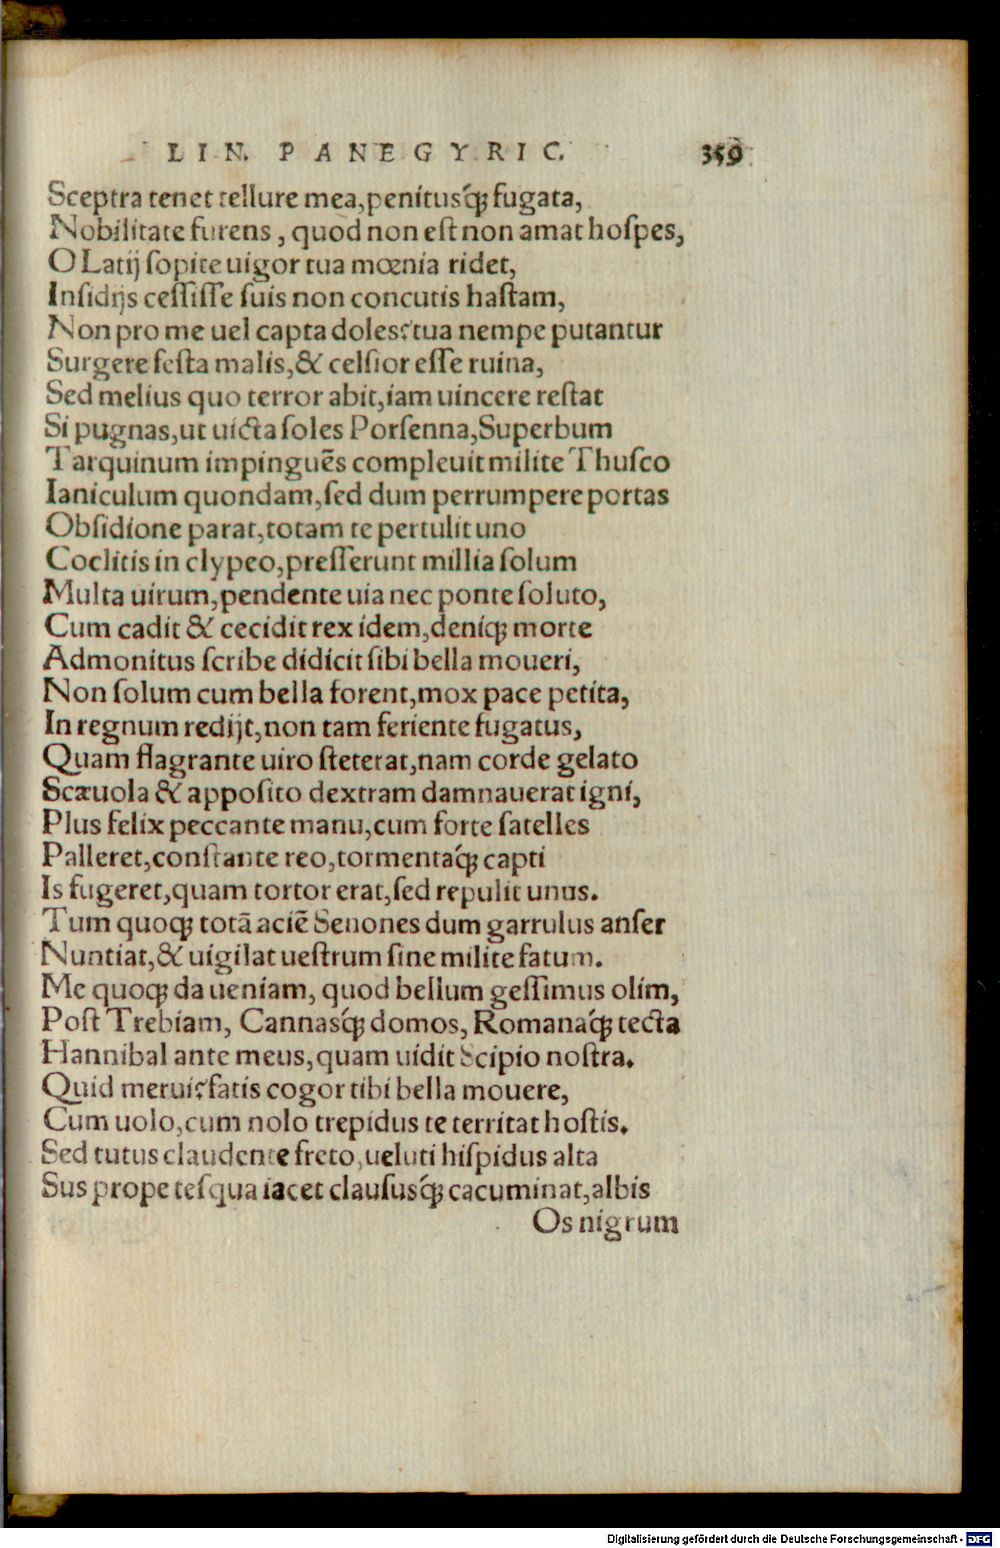 LIN. PANEGYRIC. 359
Sceptra tenet tellure mea,penitusq́ꝫ fugata,
Nobilitate furens, quod non eſt non amat hoſpes,
O Latij ſopite uigor tua mœnia ridet,
Inſidijs ceſſiſſe ſuis non concutis haſtam,
Non pro me uel capta doles?tua nempe putantur
Surgere feſta malis,& celſior eſſe ruina,
Sed melius quo terror abit,iam uincere reſtat
Si pugnas,ut uicta ſoles Porſenna,Superbum
Tarquinum impinguẽs compleuit milite Thuſco
Ianiculum quondam,ſed dum perrumpere portas
Obſidione parat,totam te pertulit uno
Coclitis in clypeo,preſſerunt millia ſolum
Multa uirum,pendente uia nec ponte ſoluto,
Cum cadit & cecidit rex idem,deniqꝫ morte
Admonitus ſcribe didicit ſibi bella moueri,
Non ſolum cum bella forent,mox pace petita,
In regnum redijt,non tam feriente fugatus,
Quam flagrante uiro ſteterat,nam corde gelato
Scæuola & appoſito dextram damnauerat igni,
Plus felix peccante manu,cum forte ſatelles
Palleret,conſtante reo,tormentaq́ꝫ capti
Is fugeret,quam tortor erat,ſed repulit unus.
Tum quoqꝫ totã aciẽ Senones dum garrulus anſer
Nuntiat,& uigilat ueſtrum ſine milite fatum.
Me quoqꝫ da ueniam, quod bellum geſſimus olim,
Poſt Trebiam, Cannasq́ꝫ domos, Romanaq́ꝫ tecta
Hannibal ante meus,quam uidit Scipio noſtra.
Quid merui?fatis cogor tibi bella mouere,
Cum uolo,cum nolo trepidus te territat hoſtis.
Sed tutus claudente freto,ueluti hiſpidus alta
Sus prope teſqua iacet clauſusq́ꝫ cacuminat,albis
Os nigrum
Digitalisierung gefördert durch die Deutsche Forschungsgemeinschaft - DFG